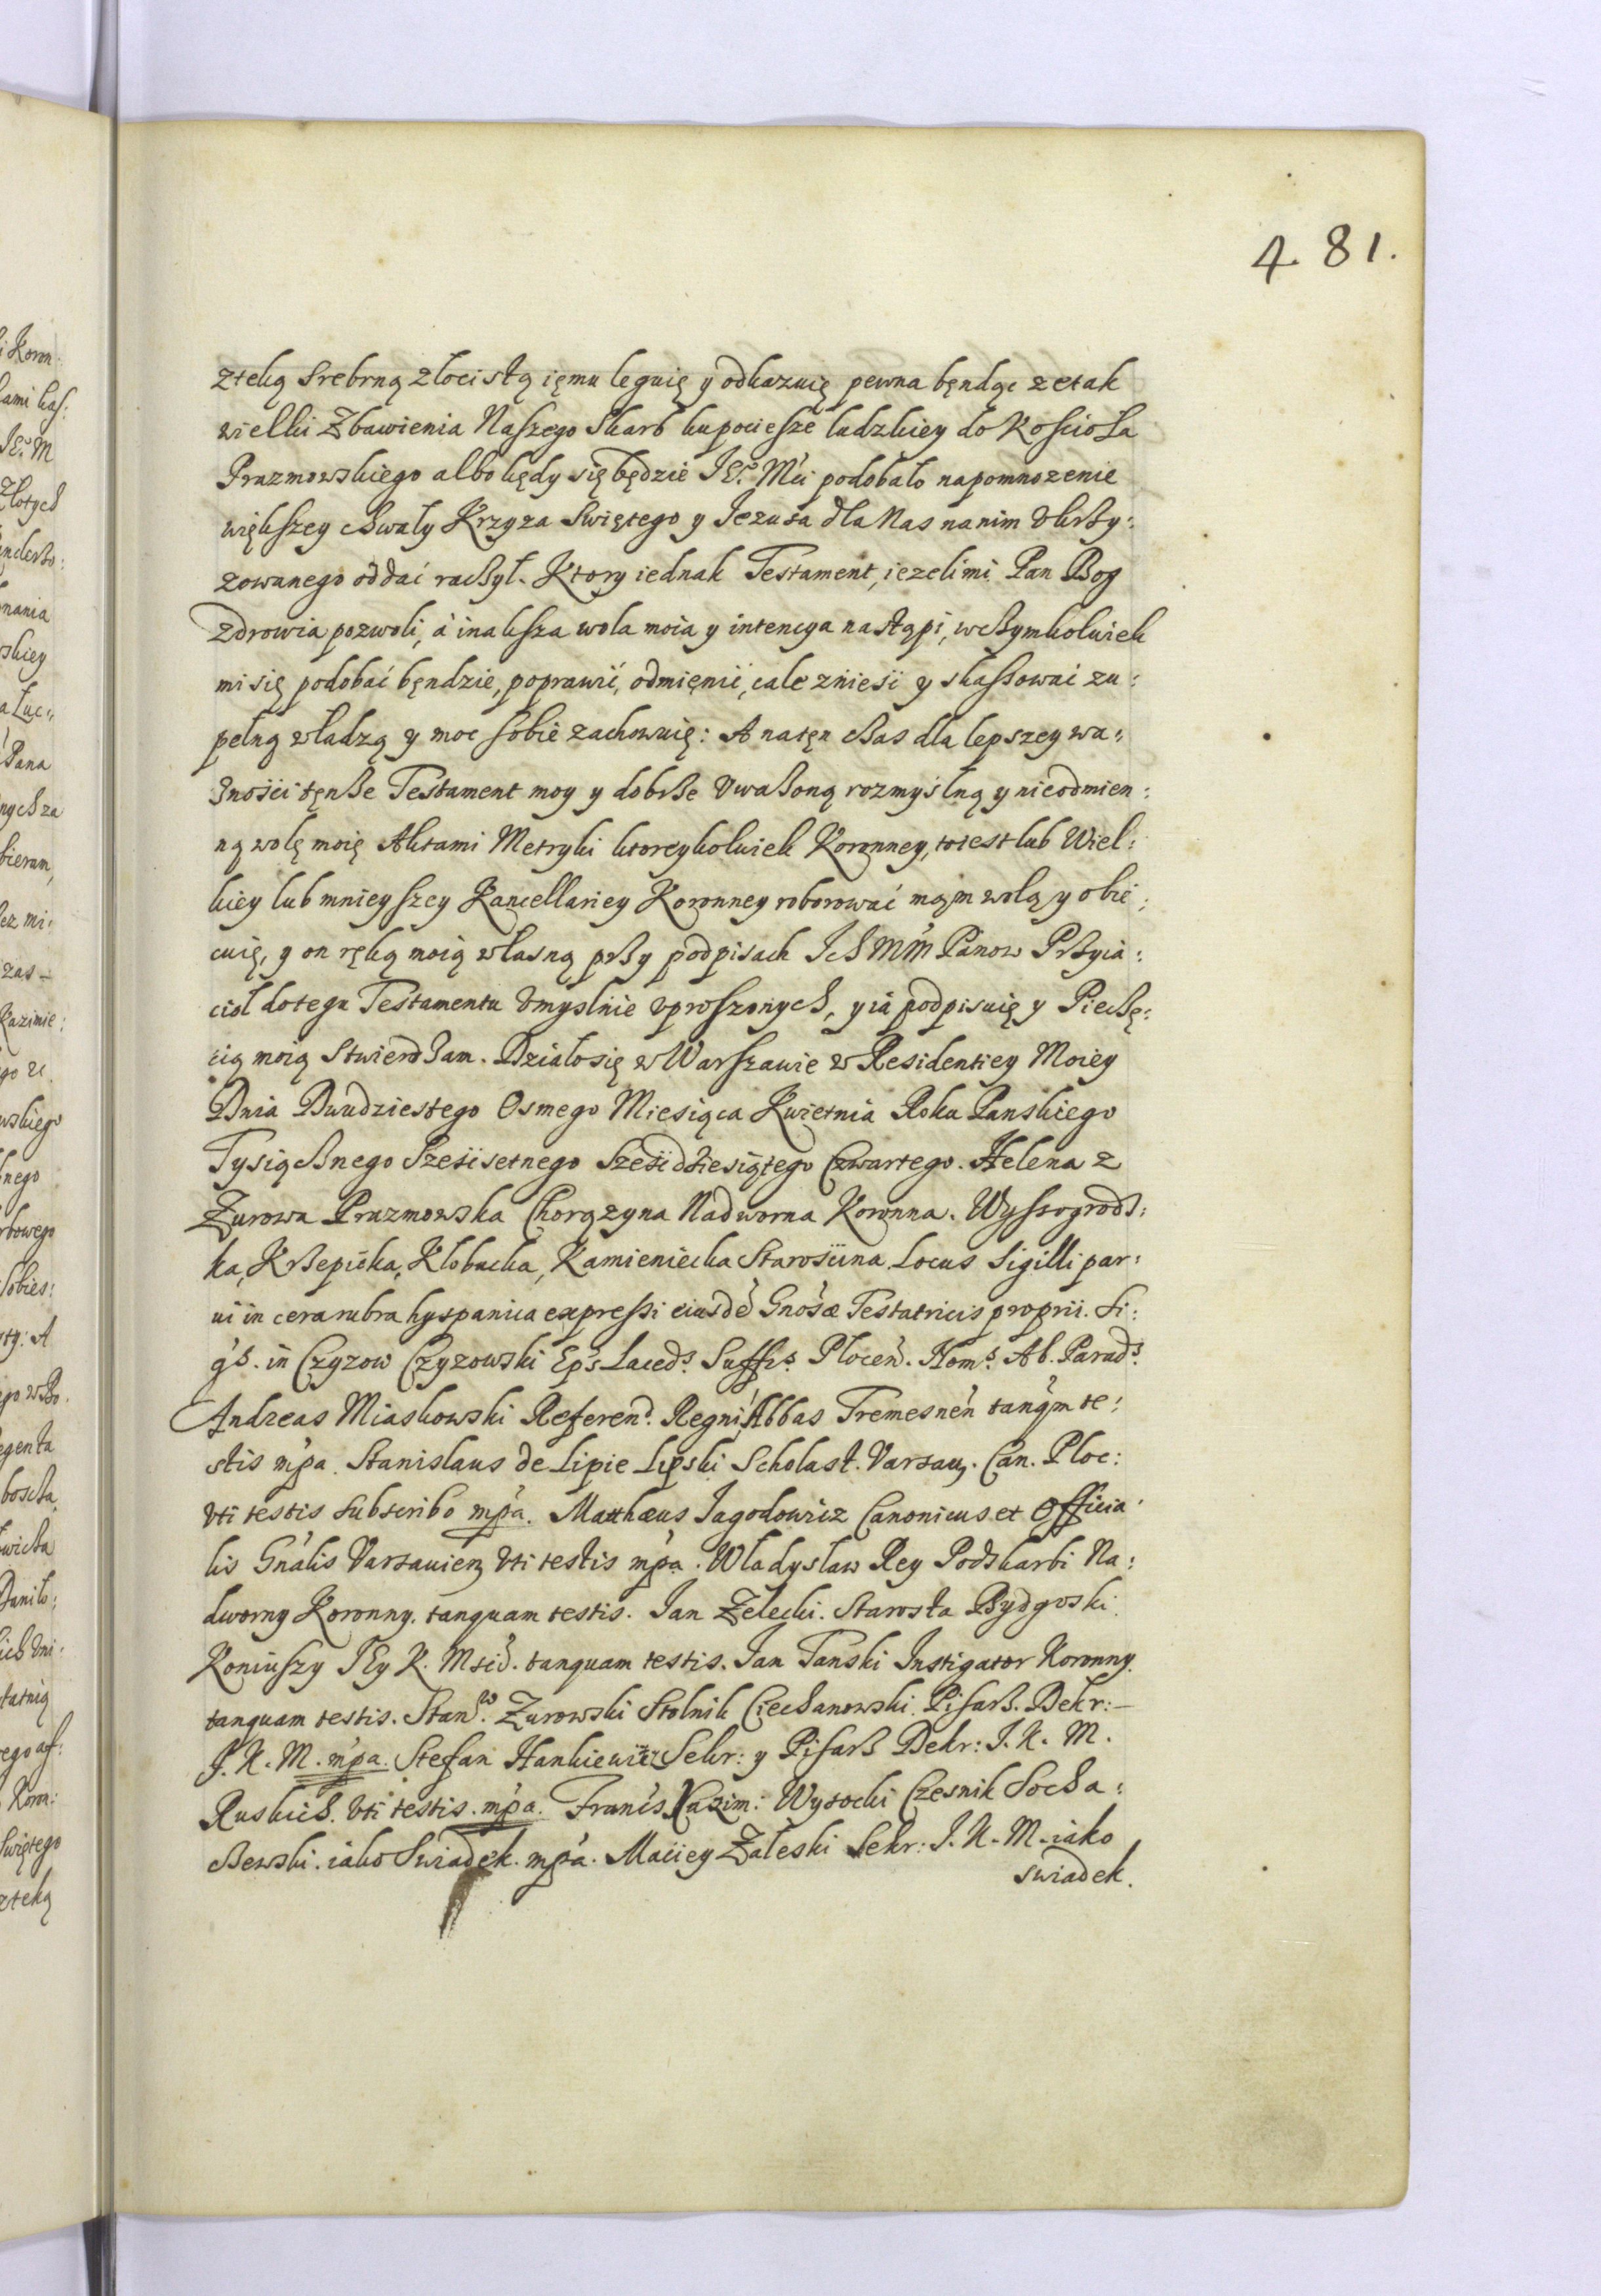 481.
ztelcą srebrną złocistą ięmu leguię y odkazuię pewna będąc zetak
wielki Zbawienia Naszego Skarb ku pociesze ludzkiey do Kościoła
Prazmowskiego albo kędy się będzie JE.º Mći podobało napomnozenie
większey chwały Krzyza Swiętego y Jezusa dla Nas nanim Vkrßy:
zowanego oddać raczył. Ktory iednak Testament, iezelimi Pan Bog
zdrowia pozwoli, á inaksza wola moia y intencya nastąpi, wczymkolwiek
mi się podobać bęndzie, poprawić, odmięnić, cale znieść y skassować zu:
pełną władzą y moc sobie zachowuię: A natęn czas dla lepszey wa:
znośći tęnße Testament moy y dobrße Vwaßoną rozmyślną y nieodmien:
ną wolę moię Aktami Metryki ktoreykolwiek Koronney, toiest lub Wiel:
kiey lub mnieyszey Kancellariey Koronney roborować mąm wolą y obie:
cuię, y on ręką moią własną przy podpisach Ich Mm Panow Przyia:
cioł dotego Testamentu Vmyslnie vproszonych, y ia podpisuię y Pieczę:
cią moią stwierdzam. Działosię w Warszawie w Residentiey Moiey
Dnia Dwudziestego Osmego Miesiąca Kwietnia Roku Panskiego
Tysiącznego Sześćsetnego Sześćdziesiątego Czwartego. Helena z
Zurowa Prazmowska Chorązyna Nadworna Koronna. Wyssogrodz:
ka, Krzepicka, Kłobucka, Kamieniecka Starośćina Locus Sigilli par:
ui in cera rubra hyspanica expressi eiusdē Gnosæ Testatricis proprii. Si:
g's. in Czyzow Czyzowski Ep's Laced.s Suff.s Płoceń. Nom.s Ab. Parad.s
Andreas Miaskowski Referend. Regni, Abbas Tremesneń tanqm te:
stis mpa. Stanislaus de Lipie Lipski Scholast. Varsau. Can. Ploc:
vti testis subscribo mpa. Matthæus Jagodowicz Canonicus et Officia:
lis Gnalis Varsauien vti testis mpa. Władysław Rey Podskarbi Na:
dworny Koronny. tanquam testis. Jan Zelecki. Starosta Bydgoski.
Koniuszy JEy K. Mści. tanquam testis. Jan Tanski Instigator Koronny.
tanquam testis. Stan.w Zurowski Stolnik Ciechanowski. Pisarß. Dekr:
J. K. M. mpa. Stefan Hankiewicz Sekr: y Pisarß Dekr: J. K. M.
Ruskich. vti testis. mpa. Francis. Kazim: Wysocki Czesnik Socha:
czewski. iako Swiadek. mpa. Maćiey Zaleski Sekr: J. K. M. iako
swiadek.